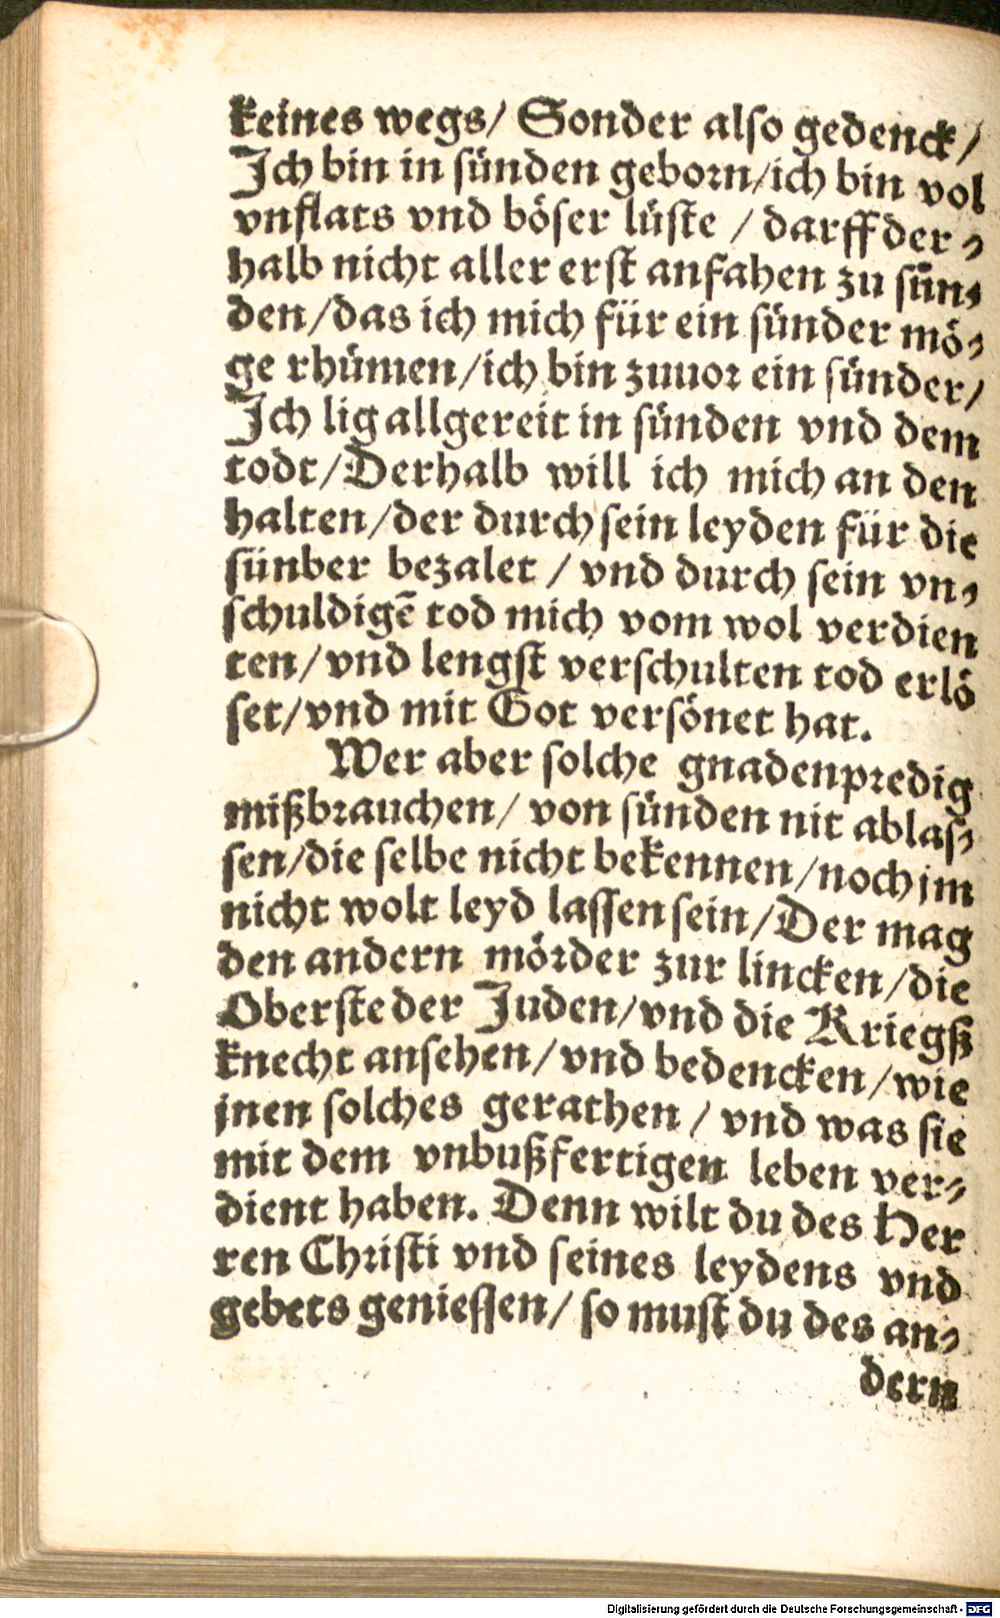 keines wegs/ Sonder also gedenck/
Jch bin in sünden geborn/ich bin vol
vnflats vnd böser lüste / darff der⸗
halb nicht aller erst anfahen zu sün⸗
den/das ich mich für ein sünder mö⸗
ge rhümen/ich bin zuuor ein sünder/
Jch lig allgereit in sünden vnd dem
todt/Derhalb will ich mich an den
halten/der durch sein leyden für die
sünber bezalet / vnd durch sein vn⸗
schuldigē tod mich vom wol verdien
ten/vnd lengst verschulten tod erlö
set/vnd mit Got versönet hat.
Wer aber solche gnadenpredig
mißbrauchen/ von sünden nit ablas⸗
sen/die selbe nicht bekennen/noch jm
nicht wolt leyd lassen sein/Der mag
den andern mörder zur lincken/die
Oberste der Juden/vnd die Kriegß
knecht ansehen/vnd bedencken/wie
jnen solches gerathen / vnd was sie
mit dem vnbußfertigen leben ver⸗
dient haben. Denn wilt du des Her
ren Christi vnd seines leydens vnd
gebets geniessen/ so must du des an⸗
dern
Digitalisierung gefördert durch die Deutsche Forschungsgemeinschaft - DFG